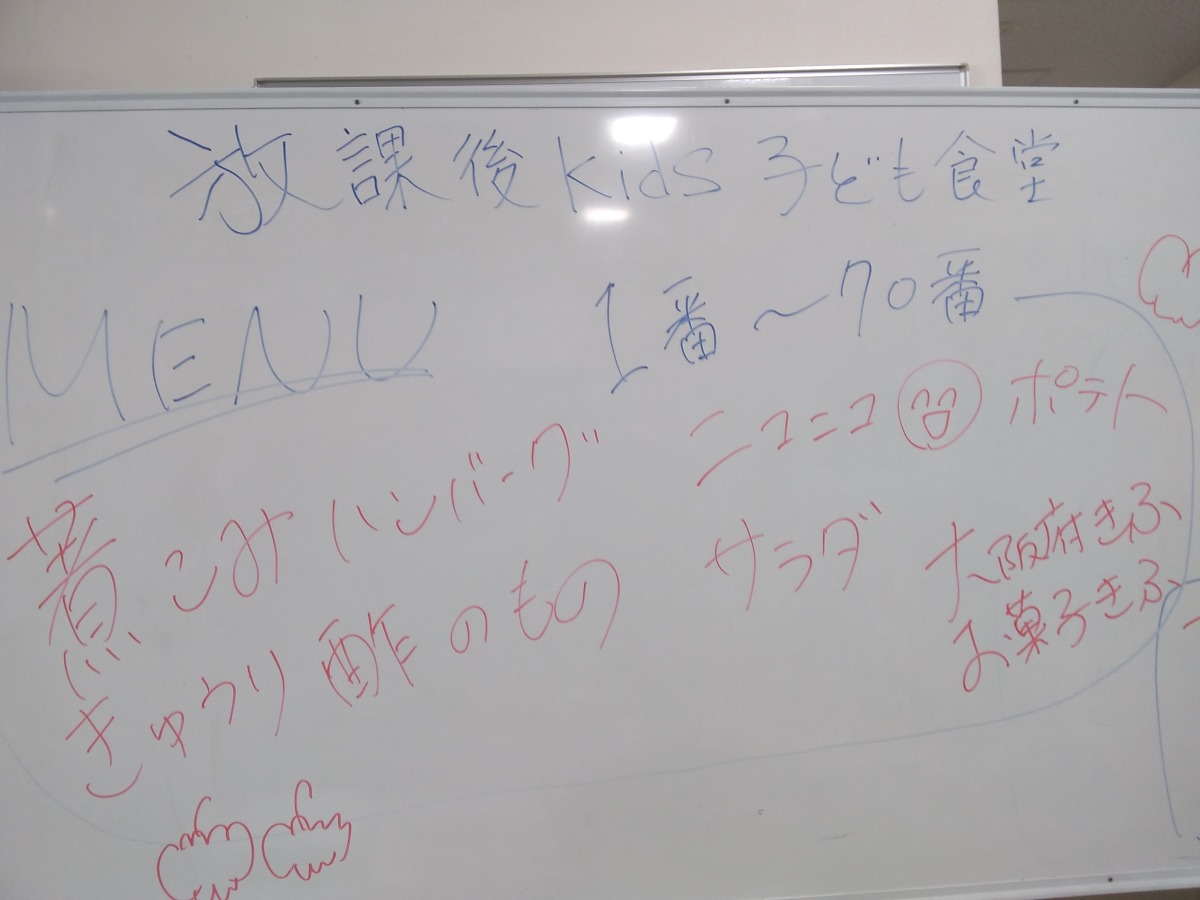 放課後kids子ども食堂
MENU 1番～70番
煮こみハンバーグ ニコニコポテト
きゅうり酢のもの サラダ 大阪府きふ
お菓子きふ